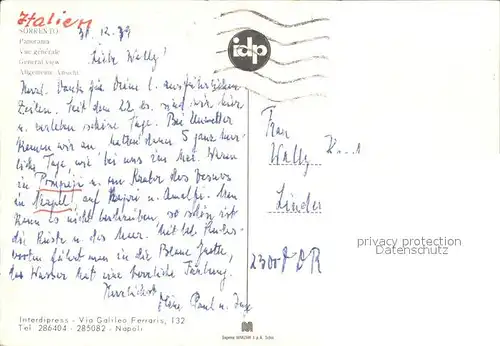 Italien
SORRENTO
Panorama
Vue générale
General view
Allgemeine Ansicht
30.12.79
Liebe Wally!
idp
Herzl. Dank für Deine l. ausführlichen
Zeilen. Seit dem 22. ds. sind wir hier
u. verleben schöne Tage. Bei Unwetter
kamen wir an, hatten dann 5 ganz herr-
liche Tage, wie bei uns im Mai. Waren
in Pompeji u. am Krater des Vesuvs
in Neapel! auf Kapri u. Amalfi. Man
kann es nicht beschreiben, so schön ist
die Küste u. das Meer. Mit kl. Ruder-
booten fährt man in die Blaue Grotte,
das Wasser hat eine herrliche Färbung.
Herzlichst
Paul u.
Frau
Wally
Linde
2300 DDR
privacy protection
Datenschutz
Interdipress - Via Galileo Ferraris, 132
Tel 286404 - 285082 - Napoli